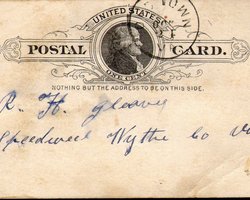 UNITED STATES
POSTAL CARD.
ONE CENT
NOTHING BUT THE ADDRESS TO BE ON THIS SIDE.
R. H.
Speedwell Wythe Co Va